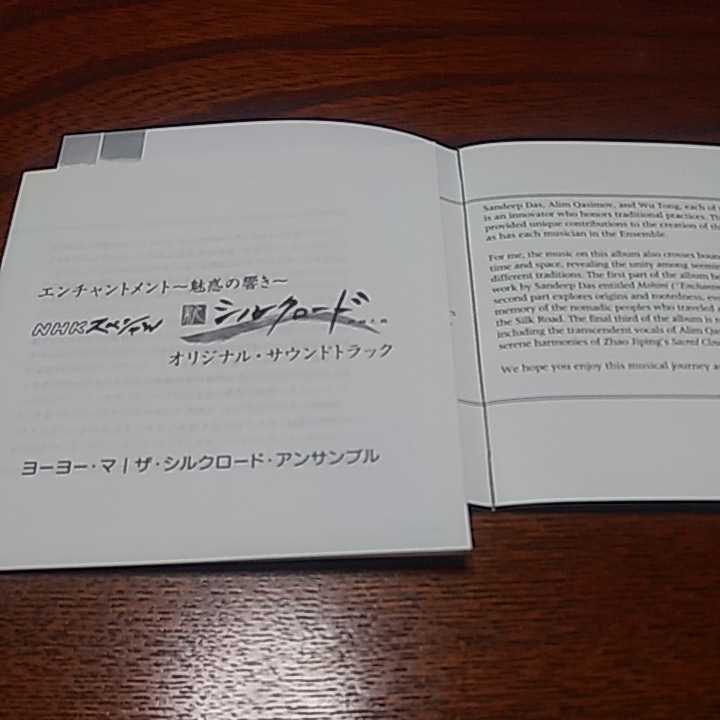 エンチャントメント～魅惑の響き～
NHKスペシャル 新シルクロード
オリジナル・サウンドトラック
ヨーヨー・マ|ザ・シルクロード・アンサンブル
Sandeep Das, Alim Qasimov, and Wu Tong, each of
is an innovator who honors traditional practices.
provided unique contributions to the creation of
as has each musician in the Ensemble.
For me, the music on this album also crosses
time and space, revealing the unity among
different traditions. The first part of the album
work by Sandeep Das entitled Mohini
second part explores origins and rootedness,
memory of the nomadic peoples who traveled
the Silk Road. The final third of the album is
including the transcendent vocals of Alim
serene harmonies of Zhao Jiping's Sacred
We hope you enjoy this musical journey